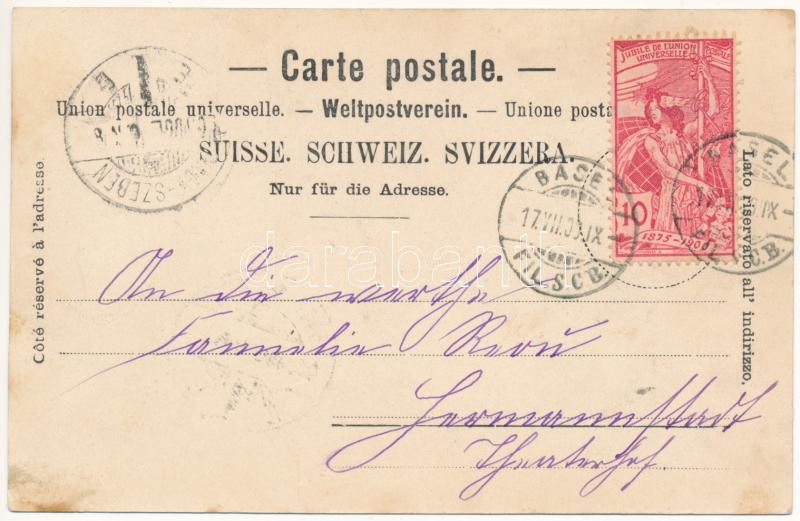 — Carte postale. —
Union postale universelle. — Weltpostverein. — Unione posta
SUISSE. SCHWEIZ. SVIZZERA.
Nur für die Adresse.
Côté réservé à l'adresse.
Lato riservato all' indirizzo.
JUBILÉ DE L'UNION
UNIVERSELLE
10
1875-1900
BASEL
17.VII.0 IX
FIL. S.C.B.
BASEL
IX
FIL. S.C.B.
SZEBEN
darabanth
An die werthe
Familie Reou
Hermannstadt
Theaterhof.